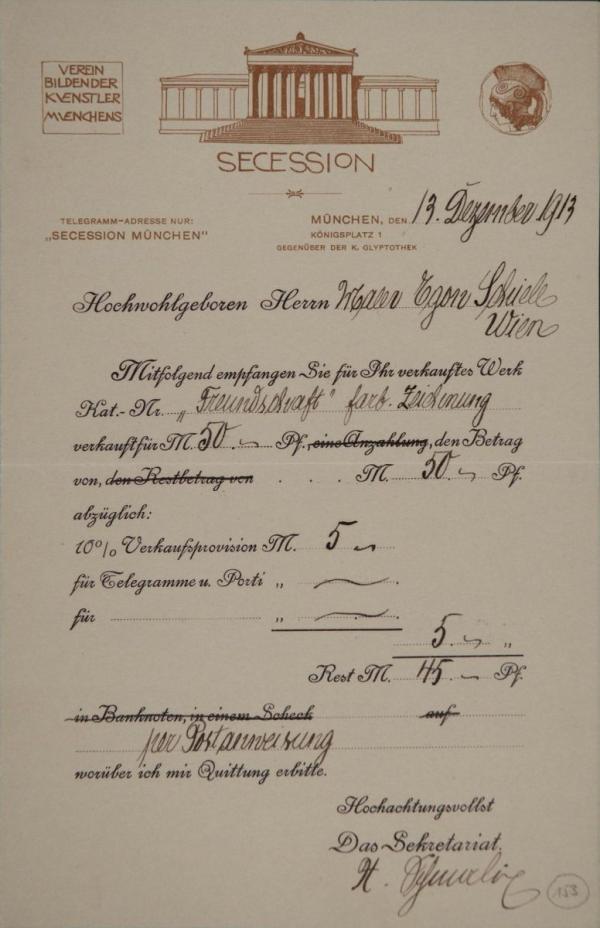 VEREIN
BILDENDER
KVENSTLER
MVENCHENS
SECESSION
TELEGRAMM-ADRESSE NUR:
„SECESSION MÜNCHEN"
MÜNCHEN, DEN 13. Dezember 1913
KÖNIGSPLATZ 1
GEGENÜBER DER K. GLYPTOTHEK
Hochwohlgeboren Herrn Maler Egon Schiele
Wien
Mitfolgend empfangen Sie für Ihr verkauftes Werk
Kat.-Nr. „Freundschaft" farb. Zeichnung
verkauft für M. 50.- Pf. eine Anzahlung, den Betrag
von, den Restbetrag von . . . M. 50.- Pf.
abzüglich:
10% Verkaufsprovision M. 5.-
für Telegramme u. Porti „ —
für „ —
5.- „
Rest M. 45.- Pf.
in Banknoten, in einem Scheck auf
per Postanweisung
worüber ich mir Quittung erbitte.
Hochachtungsvollst
Das Sekretariat.
H.
153